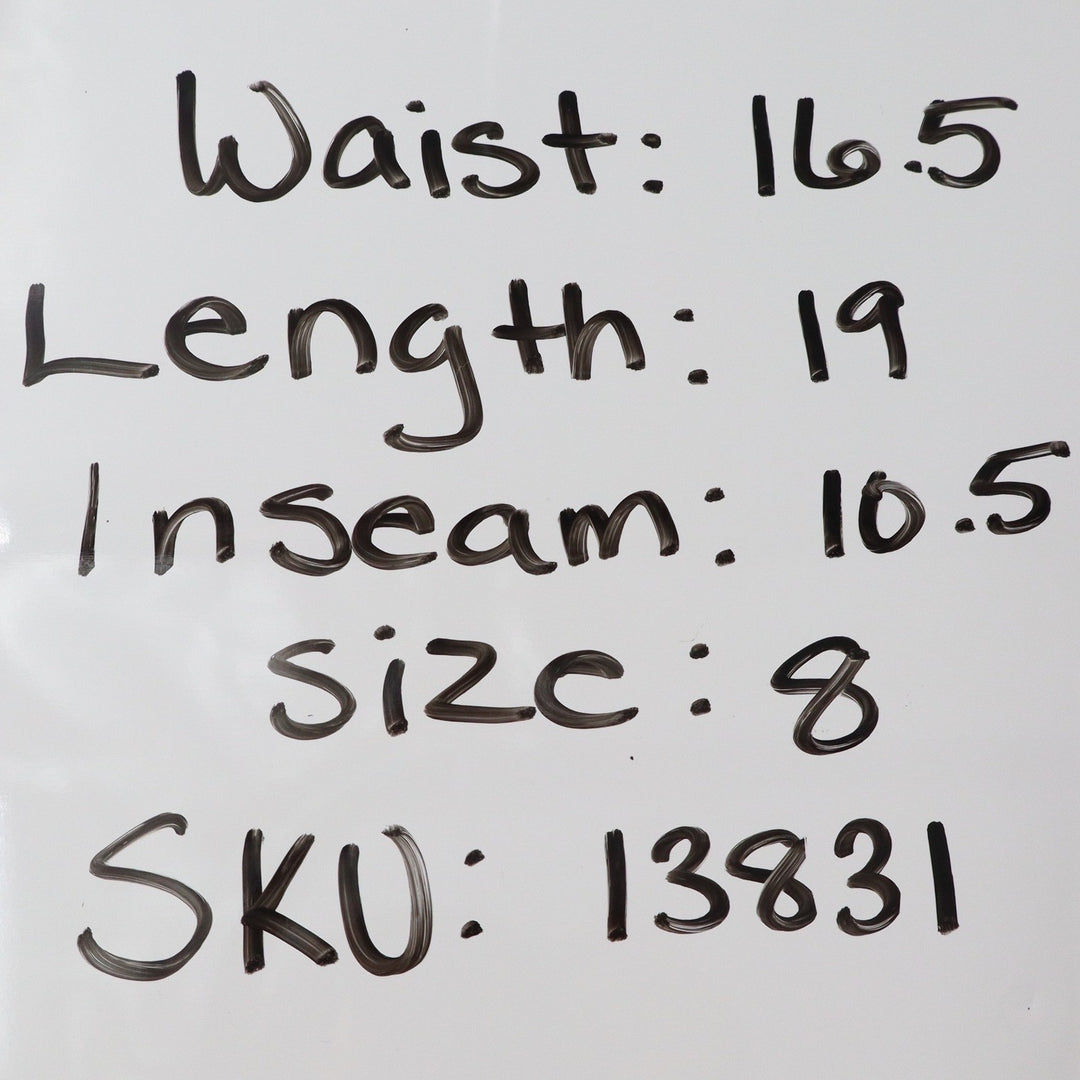 Waist: 16.5
Length: 19
Inseam: 10.5
Size: 8
SKU: 13831